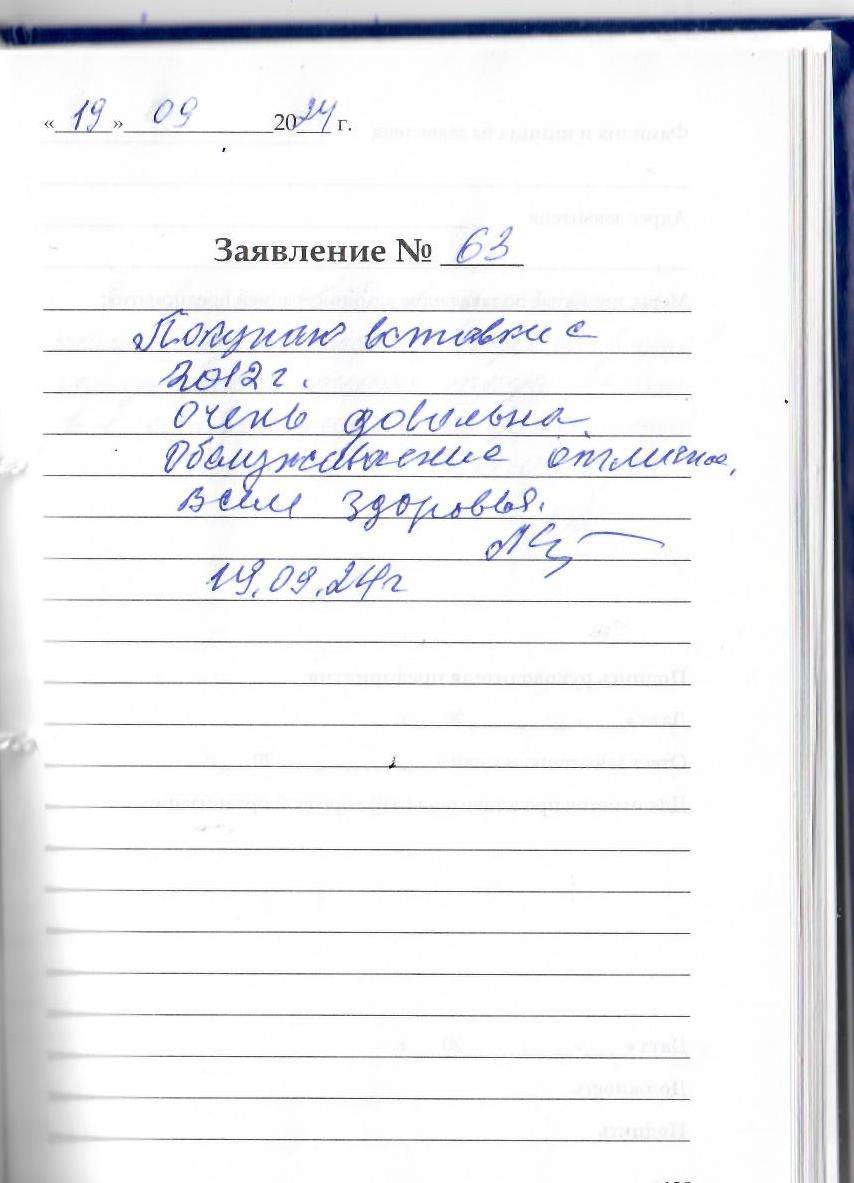 «19» 09 2024 г.
Заявление № 63
Покупаю вставки с
2012 г.
Очень довольна
Обслуживание отличное,
Всем здоровья.
19.09.24 г